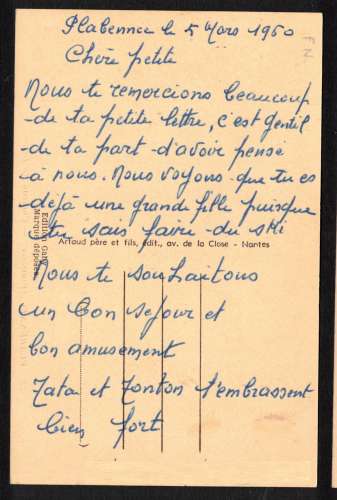 Plabennec le 5 Mars 1960
Chère petite
Nous te remercions beaucoup
de ta petite lettre, c'est gentil
de ta part d'avoir pensé
à nous. Nous voyons que tu es
déjà une grande fille puisque
tu sais faire du ski
Artaud père et fils, édit., av. de la Close - Nantes
Nous te souhaitons
un bon séjour et
bon amusement
Tata et Tonton t'embrassent
bien fort
Edition Gaby
Marque déposée